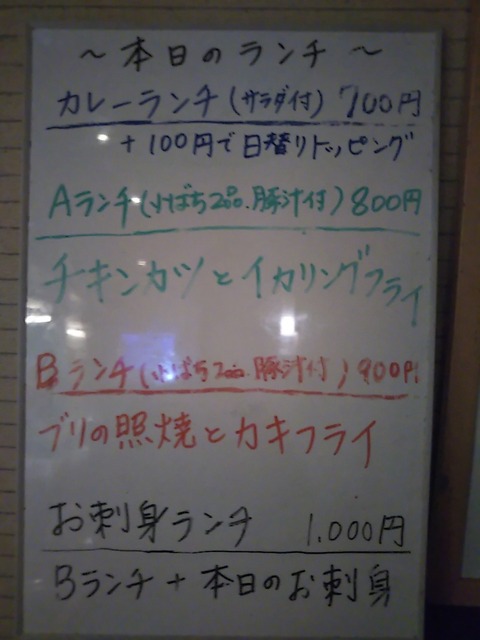 ～本日のランチ～
カレーランチ(サラダ付) 700円
+100円で日替りトッピング
Aランチ(小ばち2品.豚汁付)800円
チキンカツとイカリングフライ
Bランチ(小ばち2品.豚汁付)900円
ブリの照焼とカキフライ
お刺身ランチ 1,000円
Bランチ+本日のお刺身